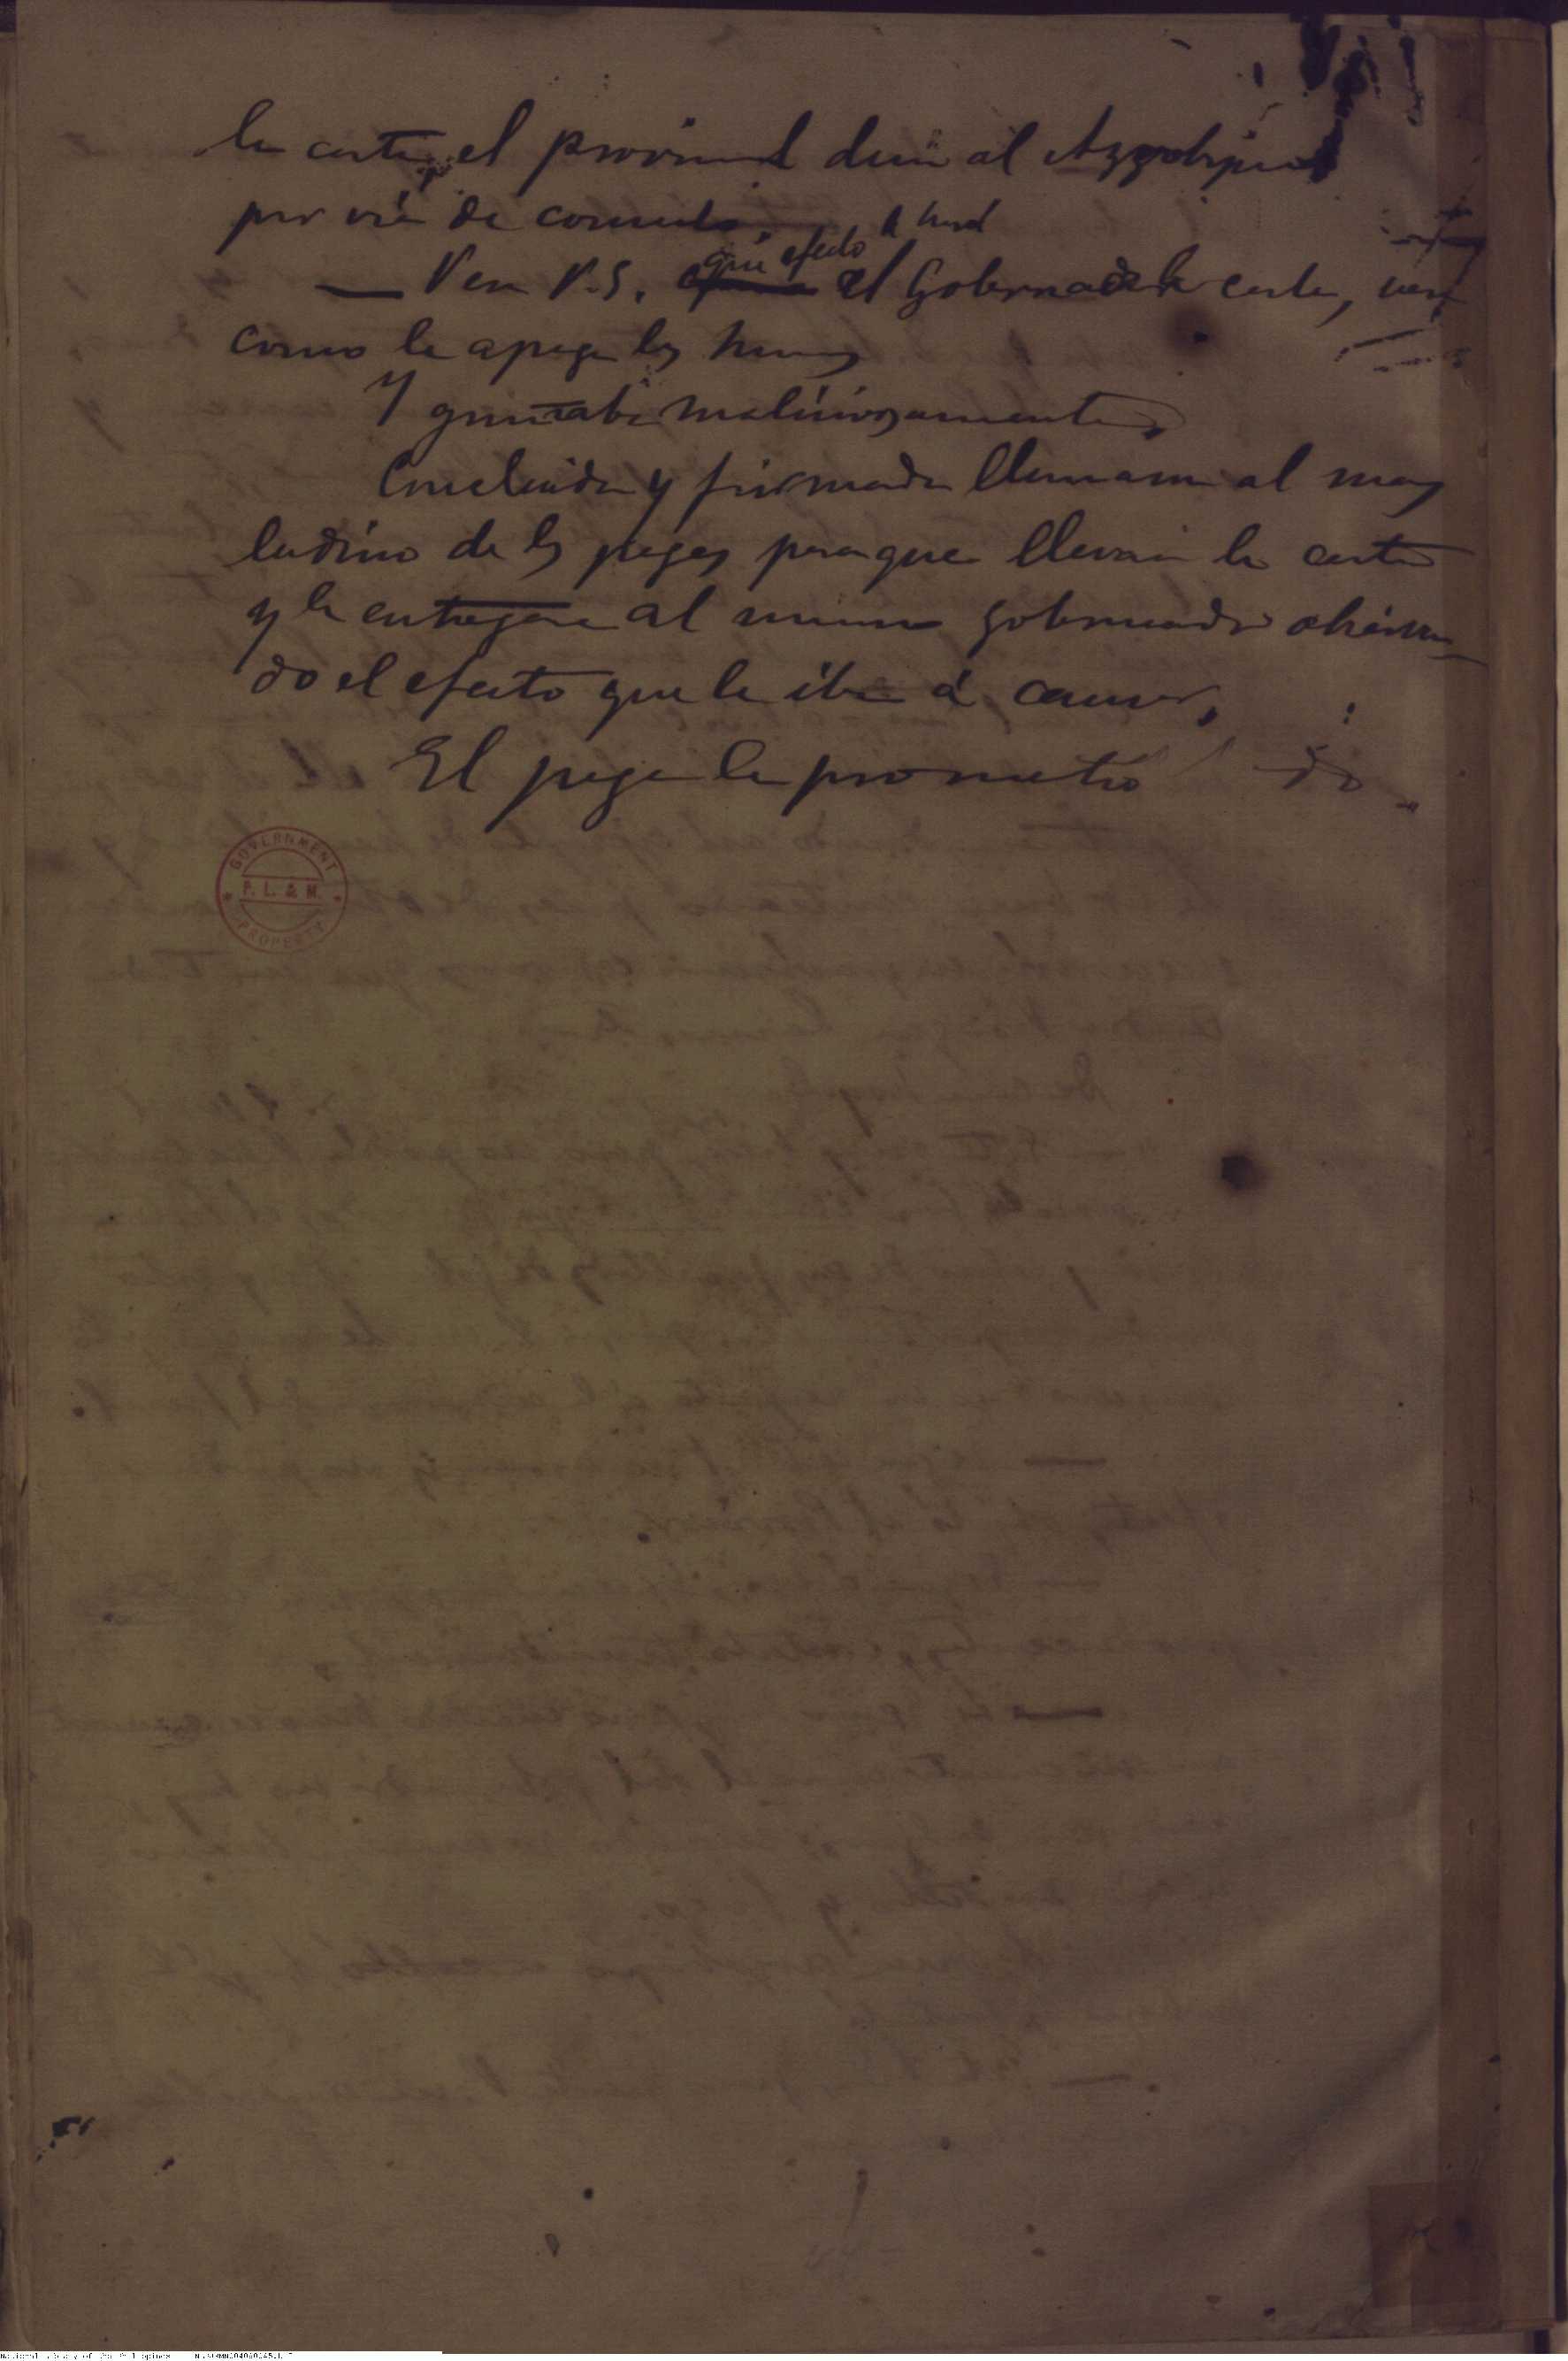 la carta el provincial decia al Arzobispo
por via de consulta.
qué efecto le hará
— Vea V.S. el Gobernador la carta, verá
como le apaga los humos
Y guiñaba maliciosamente.
Concluida y firmada llamaron al mas
ladino de los pajes para que llevara la carta
y la entregara al mismo gobernador observan-
do el efecto que le iba á causar.
El paje le prometió
GOVERNMENT
P. L. & M.
PROPERTY
National Library of the Philippines